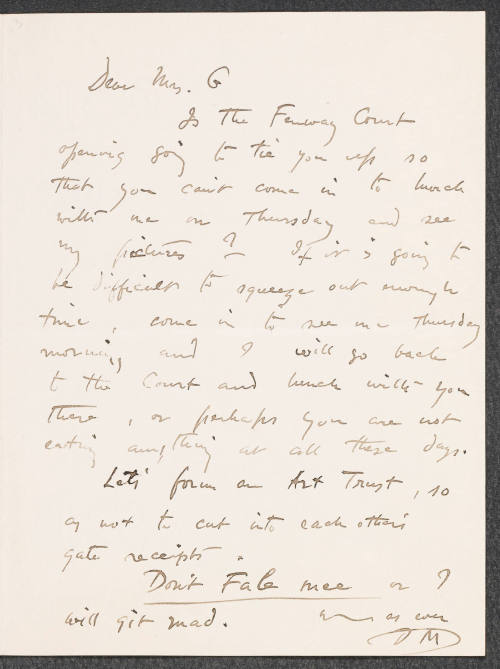 Dear Mrs. G
Is the Fenway Court
opening going to tie you up so
that you can't come in to lunch
with me on Thursday and see
my pictures? If it is going to
be difficult to squeeze out enough
time, come in to see me Thursday
morning and I will go back
to the Court and lunch with you
there, or perhaps you are not
eating anything at all these days.
Let's form an Art Trust, so
as not to cut into each others'
gate receipts.
Don't Fale mee or I
will git mad.
as ever
DM